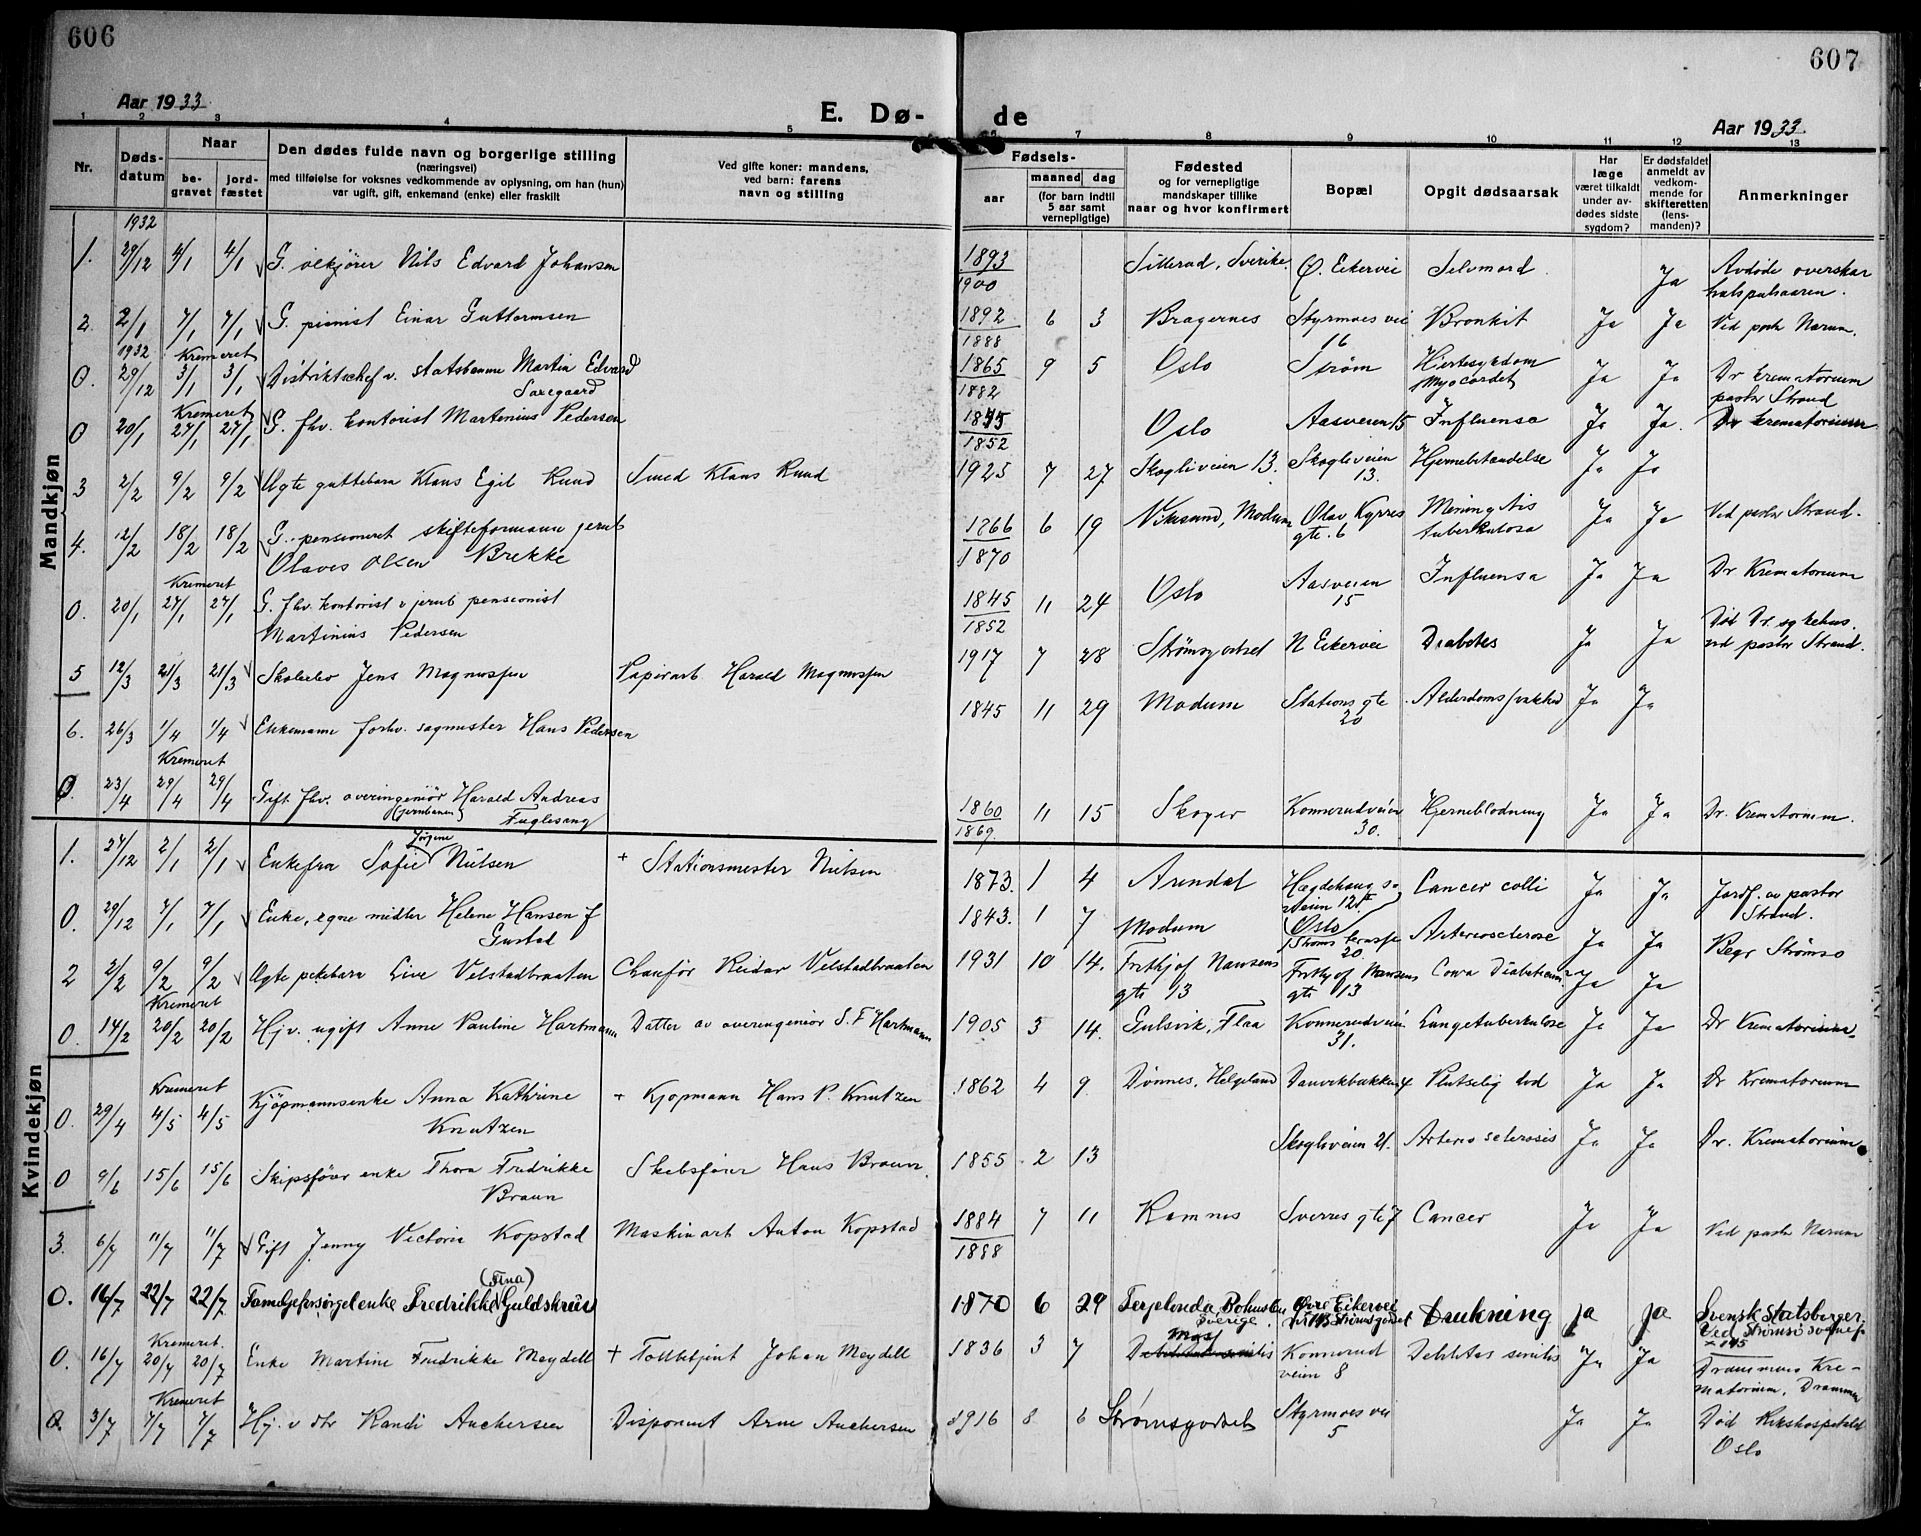 606
607
Aar 1933
E. Dø-
de
Aar 1933
1 2 3 4 5
6 7 8 9 10 11 12 13
Nr.
Døds-
datum
Naar
be-
gravet
jord-
fæstet
Den dødes fulde navn og borgerlige stilling
(næringsvei)
med tilføielse for voksnes vedkommende av oplysning, om han (hun)
var ugift, gift, enkemand (enke) eller fraskilt
Ved gifte koner: mandens,
ved barn: farens
navn og stilling
Fødsels-
aar
maaned dag
(for barn indtil
5 aar samt
vernepligtige)
Fødested
og for vernepligtige
mandskaper tillike
naar og hvor konfirmert
Bopæl
Opgit dødsaarsak
Har
læge
været tilkaldt
under av-
dødes sidste
sygdom?
Er dødsfaldet
anmeldt av
vedkom-
mende for
skifteretten
(lens-
manden)?
Anmerkninger
Mandkjøn
1932
1. 29/12 4/1 4/1 G. ølkjører Nils Edvard Johansen 1893 Sillerud, Sverike. Ø. Eikervei Selvmord Ja Avdøde overskar
1900 halspulsaaren.
2. 2/1 7/1 7/1 G. pianist Einar Guttormsen 1892 6 3 Bragernes Styrmoes vei Bronkit Ja Ja Ved pastor Narum.
1888 16
1932 Kremeret
0. 29/12 3/1 3/1 Distriktschef v. statsbanene Martin Edvard 1865 9 5 Oslo Strøm Hjertesykdom Ja Ja Dr krematorium
1882 Myocardet pastor Strand
Kremeret
0 20/1 27/1 27/1 G. fhv. kontorist Martinius Pedersen 1845 Oslo Aasveien 15 Influensa Ja Ja. Dr krematorium
1852
3 2/2 9/2 9/2 Ægte guttebarn Klaus Egil Ruud Smed Klaus Ruud 1925 7 27 Skogliveien 13. Skogliveien Hjernebetændelse Ja Ja
13.
4. 12/2 18/2 18/2 G. pensioneret skifteformann jernb 1866 6 19 Vikesund, Modum Olav Kyrres Meningitis Ja Ja Ved pastor Strand.
Olaves Olsen Brekke 1870 gte. 6 tuberkulosa
Kremeret
0. 20/1 27/1 27/1 G. fhv. kontorist v jernb pensionist 1845 11 24 Oslo Aasveien Influensa Ja Ja Dr Krematorium
Martinius Pedersen 1852 15
5 12/3 21/3 21/3 Skoleelev Jens Magnussen Papirarb Harald Magnussen 1917 7 28 Strømsgodset N Eikervei Diabetes Ja Ja Død Dr. sykehus.
ved pastor Strand.
6. 26/3 1/4 1/4 Enkemann forhv. sagmester Hans Pedersen 1845 11 29 Modum Stations gte Alderdomssvakhed Ja Ja
20
Kremeret
0. 23/4 29/4 29/4 Gift fhv. overingeniør Harald Andreas 1860 11 15 Skoger Konnerudveien Hjerneblødning Ja Ja Dr. Krematorium.
(jernbanen) Fuglesang 1869. 30.
Kvindekjøn
Jørgine
1. 24/12 2/1 2/1 Enkefru Sofie Nilsen + Stationsmester Nilsen 1873. 1 4 Arendal Cancer colli Ja Ja Jordf. av pastor
Strand.
0. 29/12 7/1 7/1 Enke, egne midler Helene Hansen f 1843. 1 7 Modum Arteriosclerose Ja Ja Begr Strømsø
Oslo
20
2 2/2 9/2 9/2 Ægte pikebarn Live Velstadbraaten Chaufør Reidar Velstadbraaten 1931 10 14. Fritjof Nansens Fritjof Nansens Coma Diabeticum Ja Ja
gte 13 gte 13
Kremeret
0. 14/2 20/2 20/2 Hjv. ugift Anne Pauline Hartmann Datter av overingeniør S. F Hartmann 1905 3 14. Gulsvik, Flaa Konnerudveien Lungetuberkulose Ja Ja Dr Krematorium
31.
Kremeret
0. 29/4 4/5 4/5 Kjøpmannsenke Anna Kathrine + Kjøpmann Hans P. Knutzen 1862 4 9 Dønnes, Helgeland Danvikbakken 4 Plutselig død Ja Ja Dr Krematorium
Knutzen
0 9/6 15/6 15/6 Skipsfører enke Thora Fredrikke Skibsfører Hans Braun. 1855 2 13 Skogliveien 21. Arterio sclerosis Ja Ja Dr. Krematorium
Braun
3. 6/7 11/7 11/7 Gift Jenny Victoria Kopstad Maskinarb Anton Kopstad 1884 7 11 Ramnes Sverres gte 7 Cancer Ja Ja Ved pastor Narum
1888
(Fina)
0. 16/7 22/7 22/7 Fredrikke Guldskrüs 1870 6 29 Bohuslen Øvre Eikervei Drukning Ja Ja Svensk Statsborger
Sverige. Strømsgodset
Kremeret. Moss
0. 16/7 20/7 20/7 Enke Martine Fredrikke Meydell + Tollbetjent Johan Meydell 1836 3 7 Konnerud Debilitas senilis Ja Ja Drammens Kre-
veien 8 matorium, Drammen
Kremeret
0. 3/7 7/7 7/7 Hj. v dtr Randi Anchersen Disponent Arne Anchersen 1916 8 6 Strømsgodset Styrmoes vei Ja Ja Død Rikshospitalet
5 Oslo